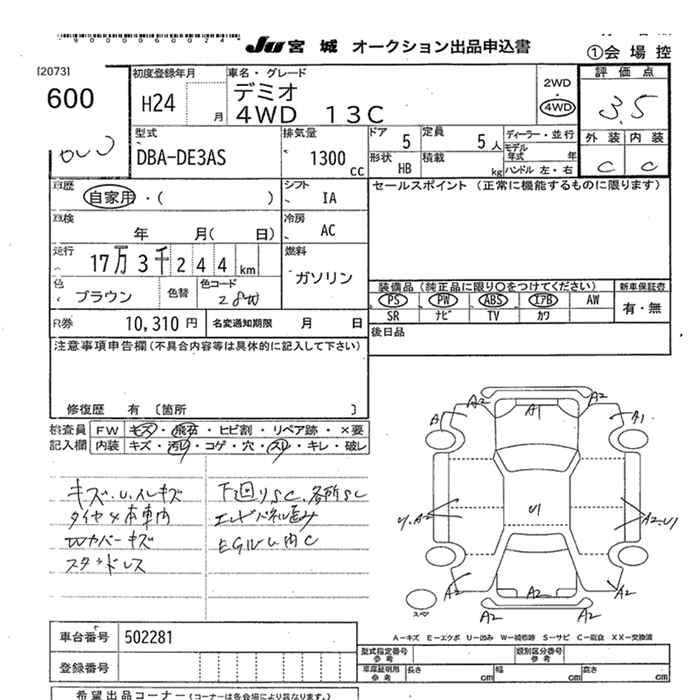 90006002４
JU 宮城 オークション出品申込書
①会場控
[2073]
600
初度登録年月
H24 月
車名・グレード
デミオ
4WD 13C
2WD
4WD
評価点
3.5
型式
DBA-DE3AS
排気量
1300 cc
ドア 5
定員 5人
形状 HB
積載 kg
ディーラー・並行
モデル年式 年
ハンドル 左・右
外装 内装
C C
車歴
自家用・( )
シフト
IA
セールスポイント (正常に機能するものに限ります)
車検
年 月( 日)
冷房
AC
走行
17万3千244km
燃料
ガソリン
色
ブラウン
色替
色コード
装備品 (純正品に限り○をつけてください)
新車保証書
PS PW ABS エアB AW
有・無
SR ナビ TV カワ
R券
10,310 円
名変通知期限 月 日
後日品
注意事項申告欄 (不具合内容等は具体的に記入して下さい)
修復歴 有 〔箇所 〕
検査員 FW キズ・飛石・ヒビ割・リペア跡・×要
記入欄 内装 キズ・汚れ・コゲ・穴・スレ・キレ・破レ
キズ.U.イレキズ
タイヤ4本車内
Wカバーキズ
スタッドレス
下回りSC.各所SC
エンドパネル歪み
EGルーム内C
A2 A2
A1 A1 A1
U1
U.A2 A2.U1
A2 A2 A2
A2 A2
スペア
A－キズ E－エクボ U－凹み W－補修跡 S－サビ C－腐食 XX－交換済
車台番号 502281
登録番号
型式指定番号 参考
類別区分番号 参考
車庫証明用 参考
長さ cm 幅 cm 高さ cm
希望出品コーナー (コーナーは各会場により異なります。)